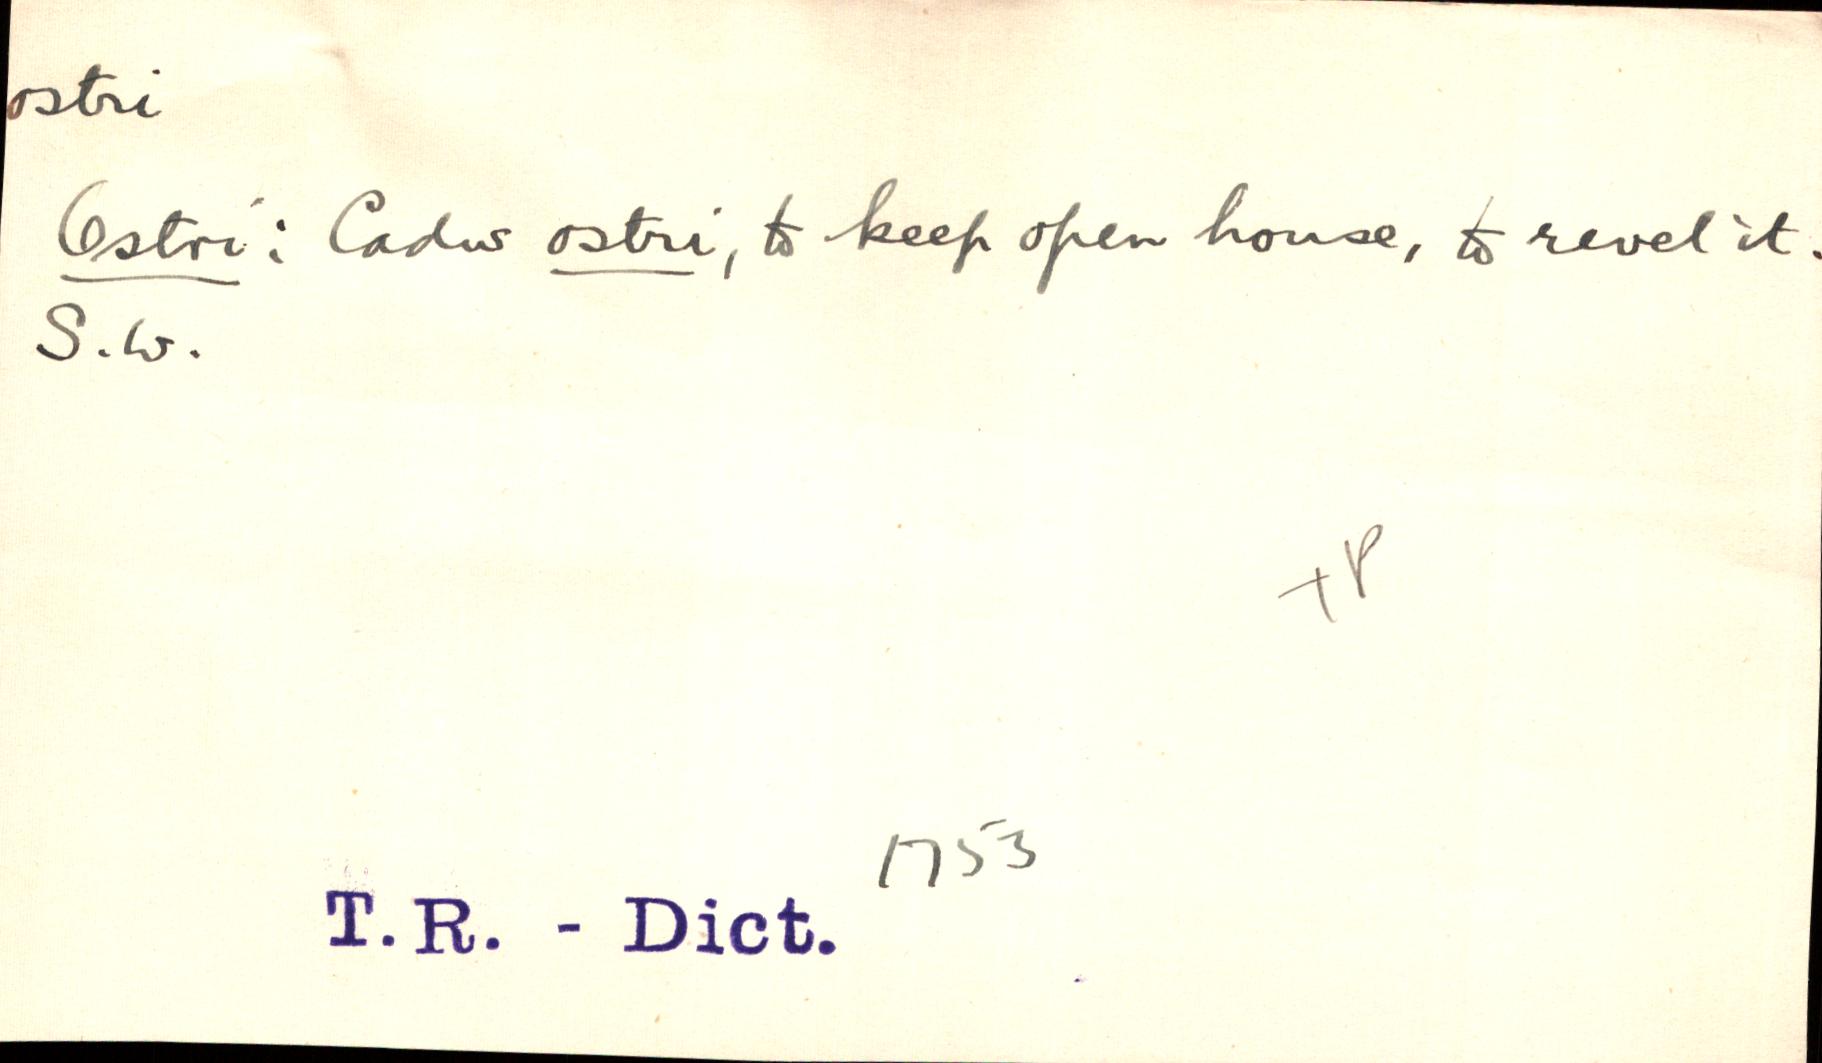 ostri
Ostri: Cadw ostri, to keep open house, to revel it.
S.W.
+P
1753
T.R. - Dict.